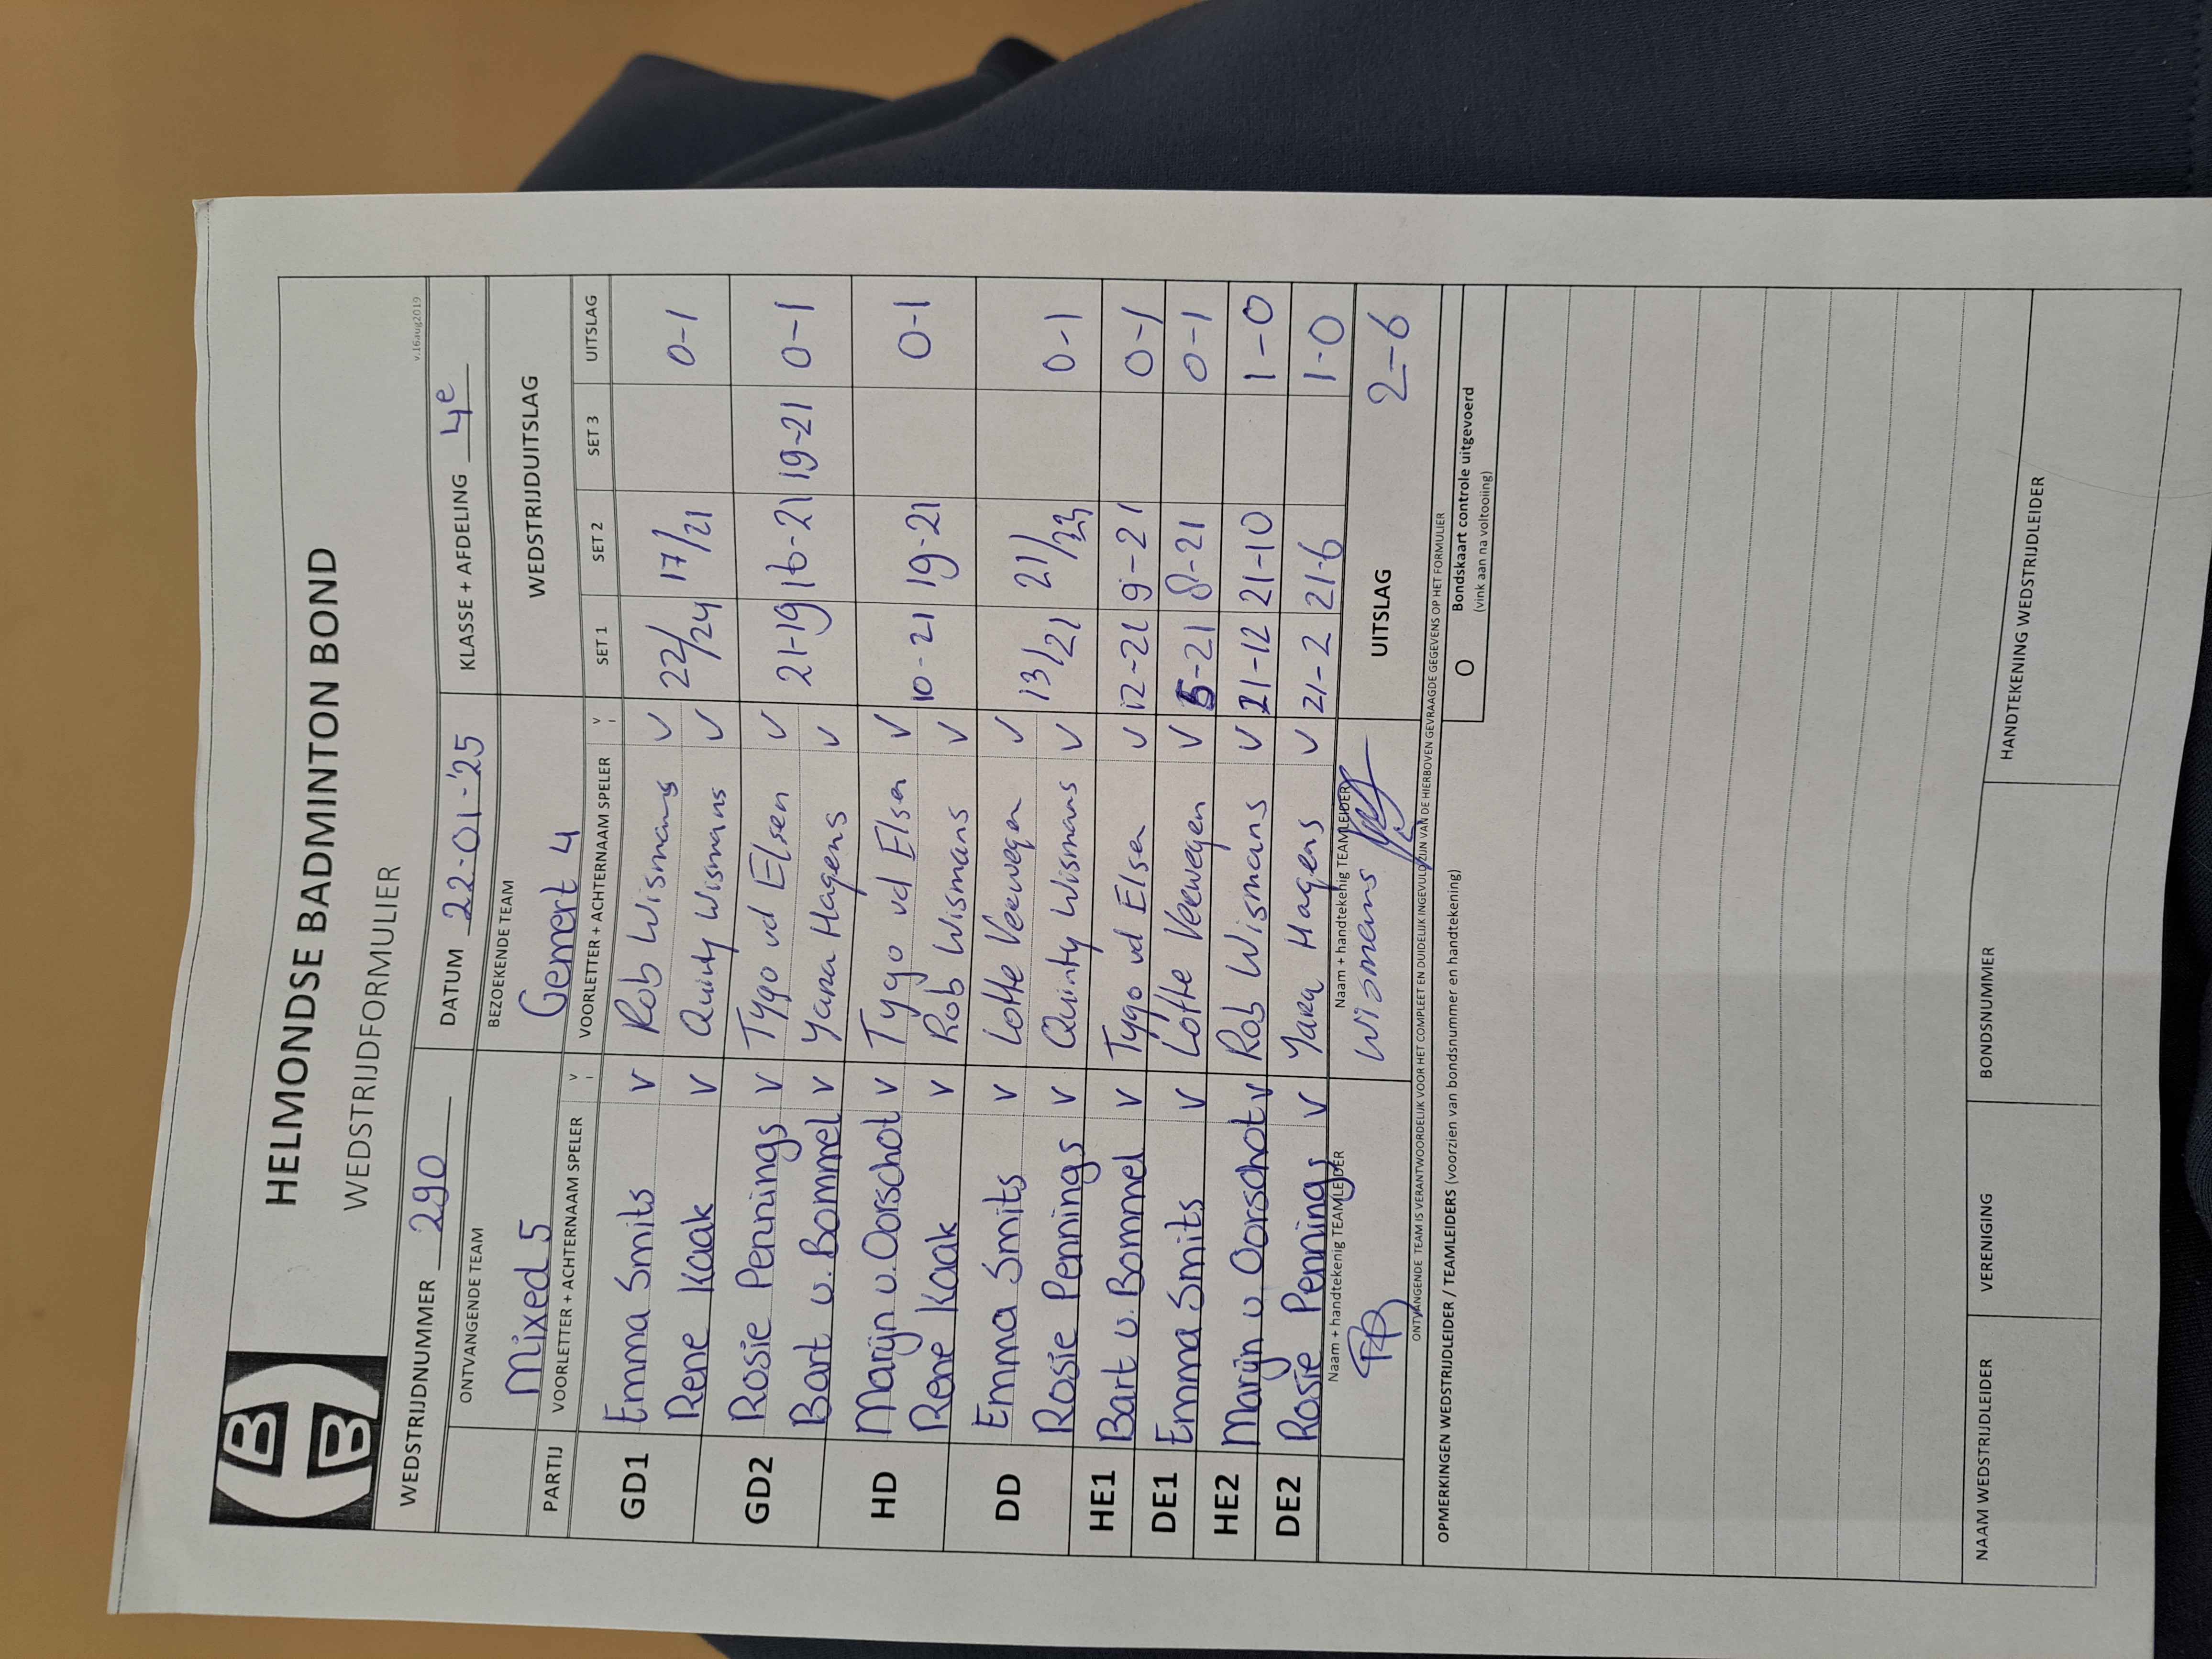 HELMONDSE BADMINTON BOND
WEDSTRIJDFORMULIER
v.16aug2019
WEDSTRIJDNUMMER 290 DATUM 22-01-'25 KLASSE + AFDELING 4e
ONTVANGENDE TEAM BEZOEKENDE TEAM WEDSTRIJDUITSLAG
Mixed 5 Gemert 4
PARTIJ VOORLETTER + ACHTERNAAM SPELER V VOORLETTER + ACHTERNAAM SPELER V SET 1 SET 2 SET 3 UITSLAG
GD1 Emma Smits V Rob Wismans V 22/24 17/21 0-1
Rene Kaak V Quinty Wismans V
GD2 Rosie Pennings V Tygo vd Elsen V 21-19 16-21 19-21 0-1
Bart v. Bommel V Yara Hagens V
HD Marijn v. Oorschot V Tygo vd Elsen V 10-21 19-21 0-1
Rene Kaak V Rob Wismans V
DD Emma Smits V Lotte Verwegen V 13/21 21/23 0-1
Rosie Pennings V Quinty Wismans V
HE1 Bart v. Bommel V Tygo vd Elsen V 12-21 9-21 0-1
DE1 Emma Smits V Lotte Verwegen V 5-21 8-21 0-1
HE2 Marijn v Oorschot V Rob Wismans V 21-12 21-10 1-0
DE2 Rosie Pennings V Yara Hagens V 21-2 21-6 1-0
Naam + handtekenig TEAMLEIDER Naam + handtekehig TEAMLEIDER UITSLAG 2-6
Wismans
ONTVANGENDE TEAM IS VERANTWOORDELIJK VOOR HET COMPLEET EN DUIDELIJK INGEVULD ZIJN VAN DE HIERBOVEN GEVRAAGDE GEGEVENS OP HET FORMULIER
OPMERKINGEN WEDSTRIJDLEIDER / TEAMLEIDERS (voorzien van bondsnummer en handtekening)
O Bondskaart controle uitgevoerd
(vink aan na voltooiing)
NAAM WEDSTRIJDLEIDER VERENIGING BONDSNUMMER HANDTEKENING WEDSTRIJDLEIDER